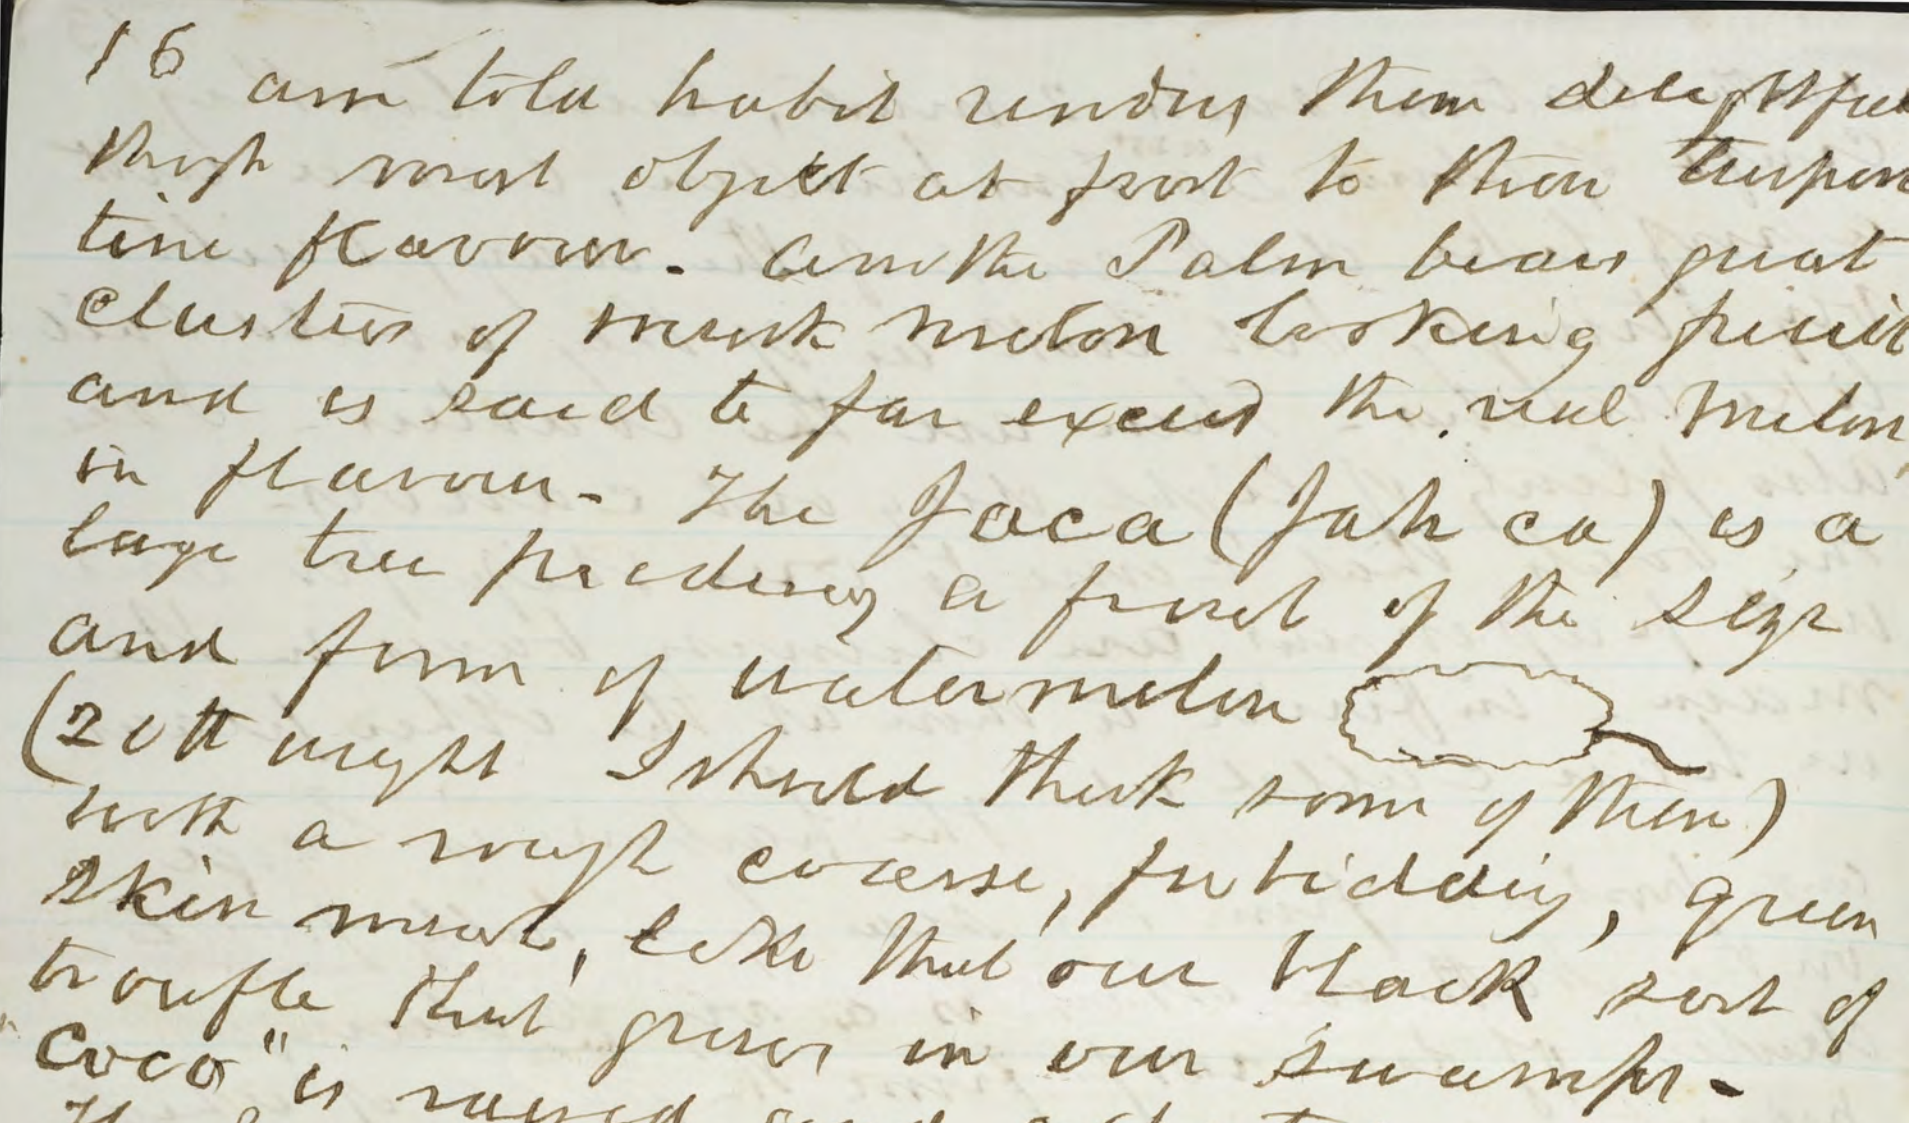 16 am told habit renders them delightful
though most object at first to their turpen
tine flavour. Another Palm bears great
clusters of musk melon looking fruit
and is said to far exceed the real melon
in flavour. The Jaca (Jah ca) is a
large tree producing a fruit of the size
and form of watermelon
(20 lb weight I should think some of them)
with a rough coarse, forbidding, green
skin much, like that our black sort of
troufle that grows in our swamps.
"Coco" is